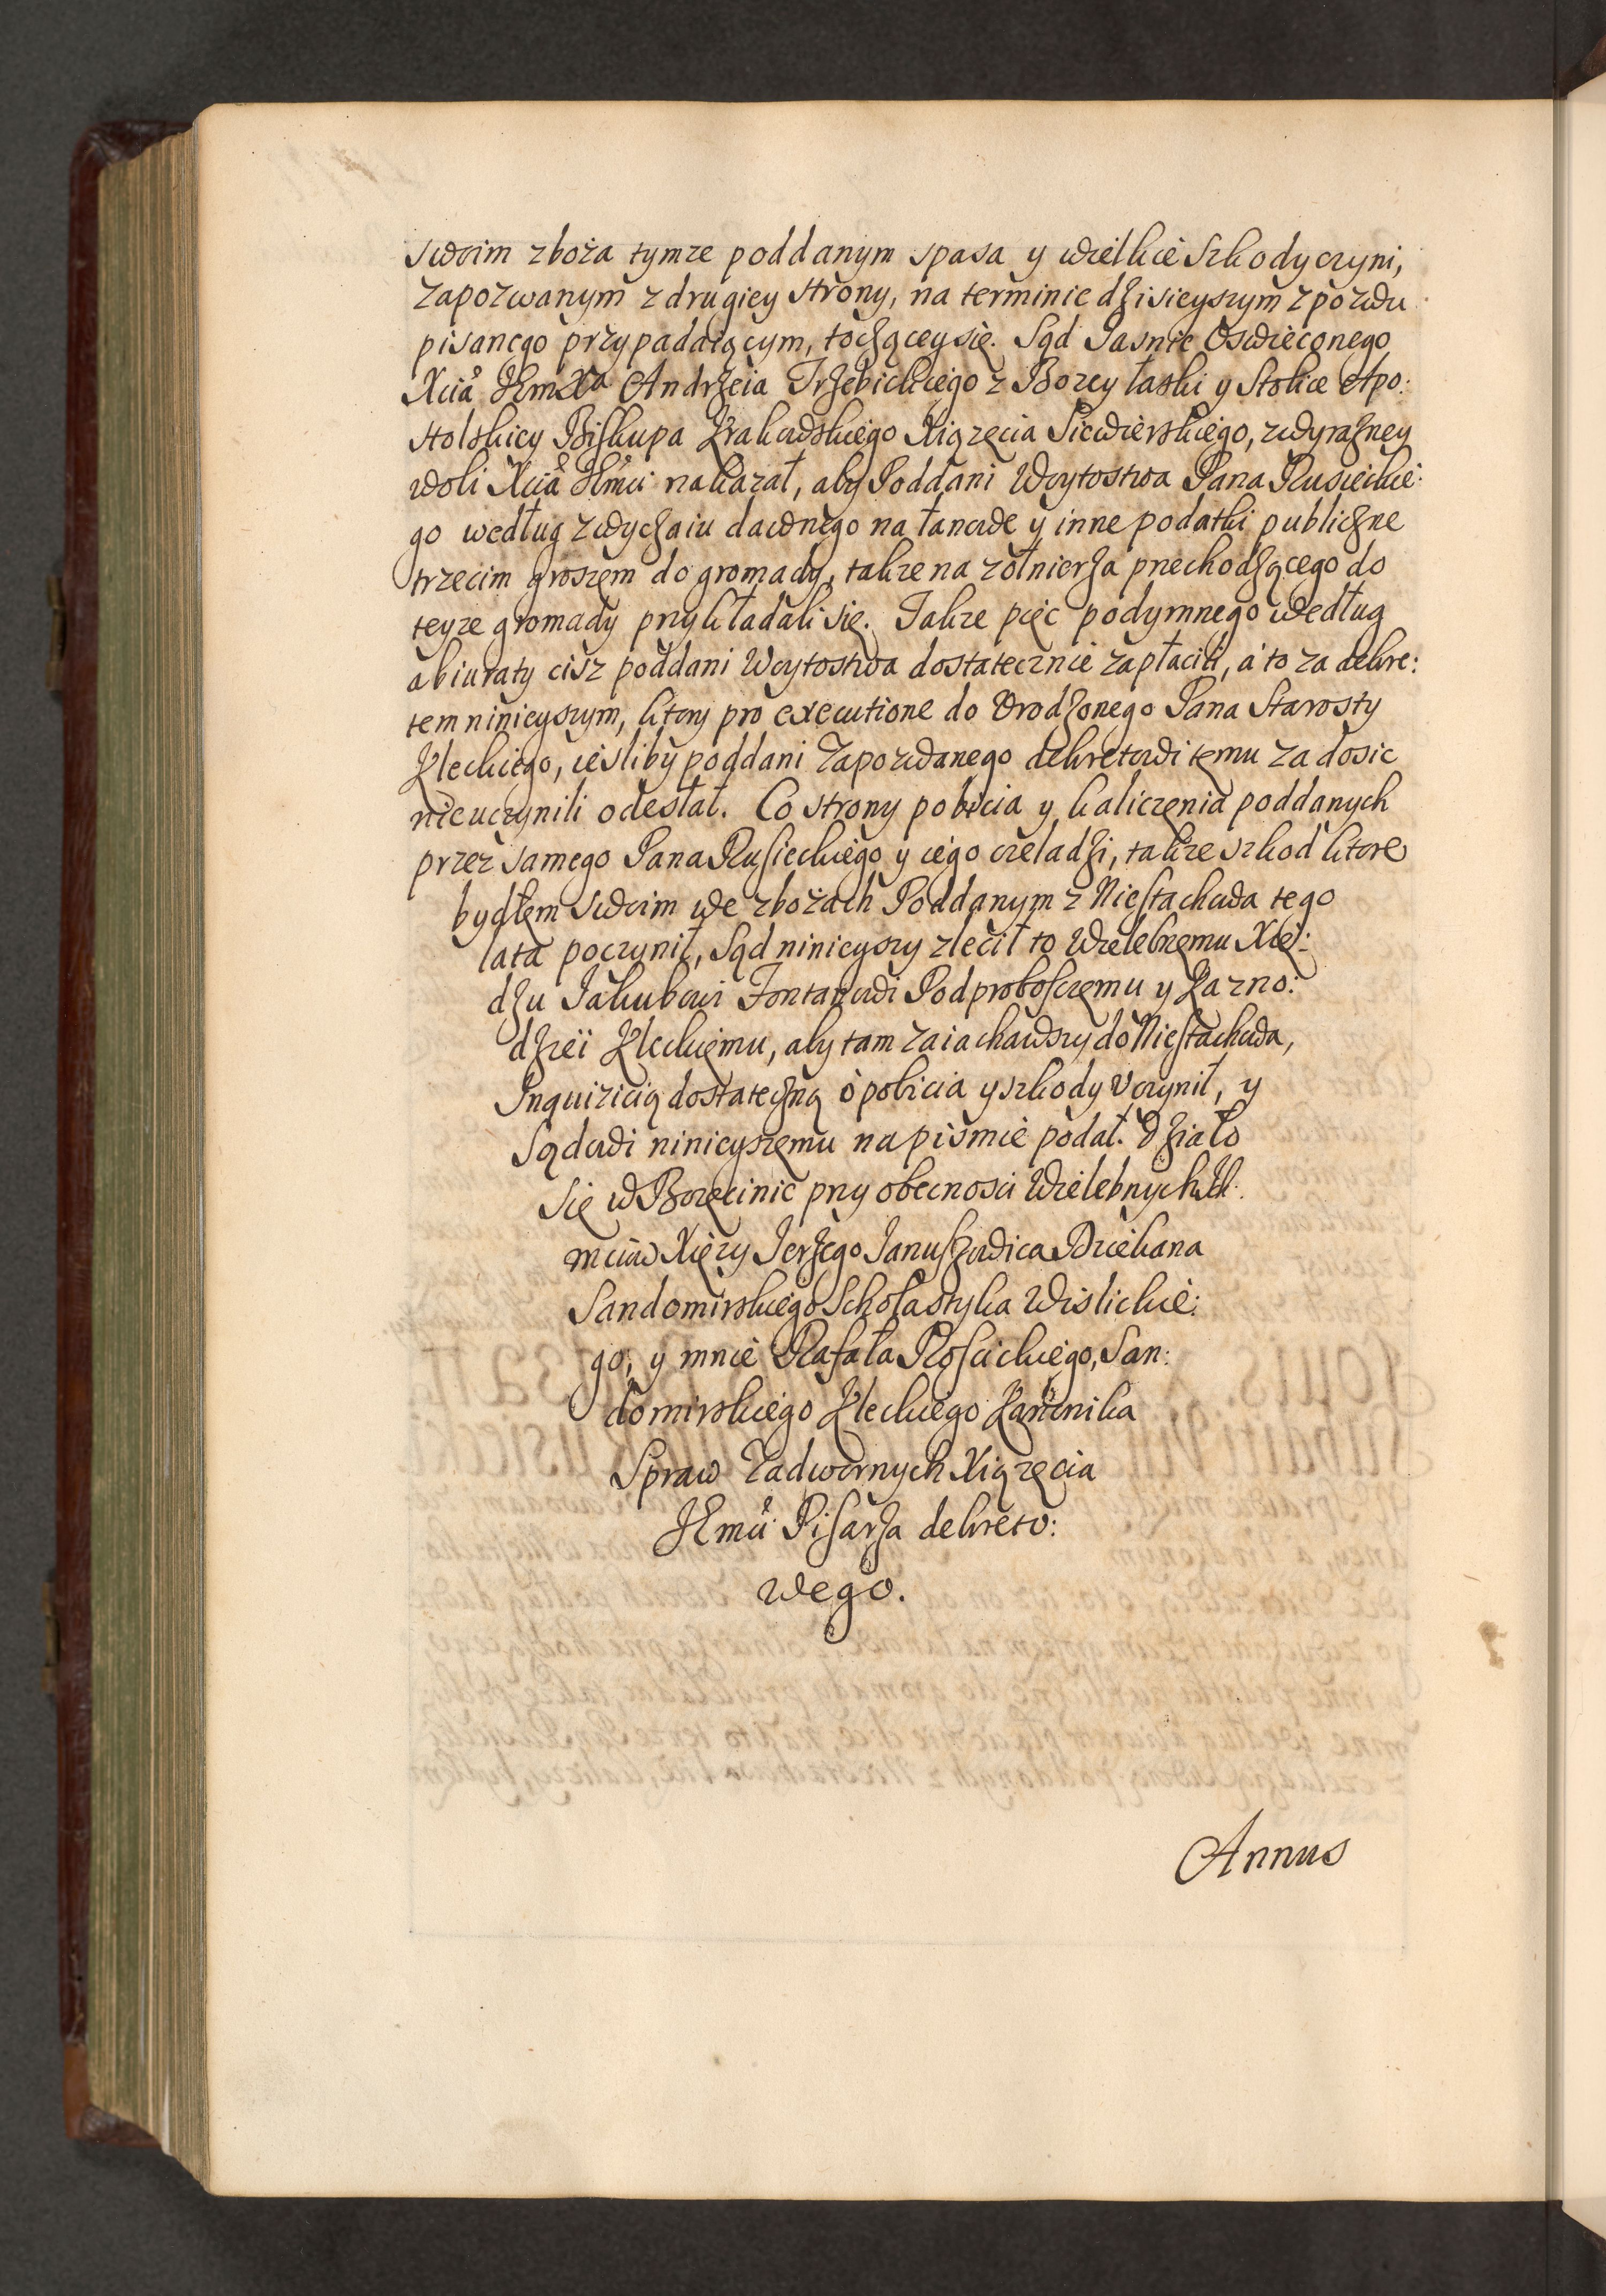 swoim zboża tymze poddanym spasa y wielkie szkody czyni,
zapozwanym z drugiey strony, na terminie dzisieyszym z pozwu
pisanego przypadaiącym, toczącey się. Sąd Jasnie Oswieconego
Xcia JEmXa Andrzeia Trzebickiego z Bozey łaski y Stolice Apo:
stolskiey Biskupa Krakowskiego Xiązęcia Siewierskiego, z wyrazney
woli Xcia JEmci nakazał, aby Poddani Woytostwa Pana Rusieckie:
go według zwyczaiu dawnego na łanowe y inne podatki publiczne
trzecim groszem do gromady, takze na zołnierza przechodzącego do
teyze gromady przykładali się. Takze pięc podymnego według
abiuraty cisz poddani Woytostwa dostatecznie zapłacili, a to za dekre:
tem ninieyszym, ktory pro executione do Urodzonego Pana Starosty
Kieckiego, iesliby poddani Zapozwanego dekretowi temu za dosic
nie uczynili odesłał. Co strony pobicia y kaliczenia poddanych
przez samego Pana Rusieckiego y iego czeladzi, takze szkod ktore
bydłem swoim we zbożach Poddanym z Niestachowa tego
lata poczynił, Sąd ninieyszy zlecił to Wielebnemu Xię:
dzu Jakubowi Fontanowi Podproboszczemu y Kazno:
dzieii Kieckiemu, aby tam zaiachawszy do Niestachowa,
Inquizicią dostateczną o pobicia y szkody uczynił, y
Sądowi ninieyszemu na pismie podał. Działo
się w Borzęcinie przy obecnosci Wielebnych Ich
mciow Xięzy Jerzego Januszowica Dziekana
Sandomirskiego Scholastyka Wislickie:
go, y mnie Rafała Roscickiego, San:
domirskiego Kieckiego Kanonika
Spraw Zadwornych Xiązęcia
JEmci Pisarza dekreto:
wego.
Annus